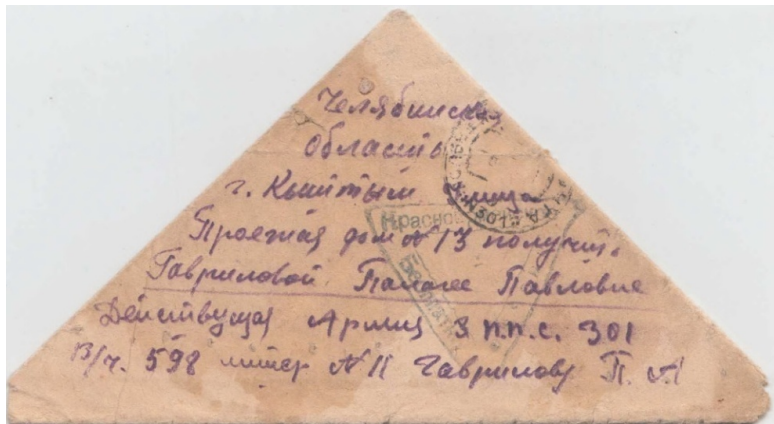 Челябинска
Область
г. Кыштым улица
Проезжая дом № 13 получит.
Гавриловой Палагее Павловне
Действующая Армия 3 п.п.с. 301
В/ч. 598 литер № 11 Гаврилову П. А
Красно
Беспла